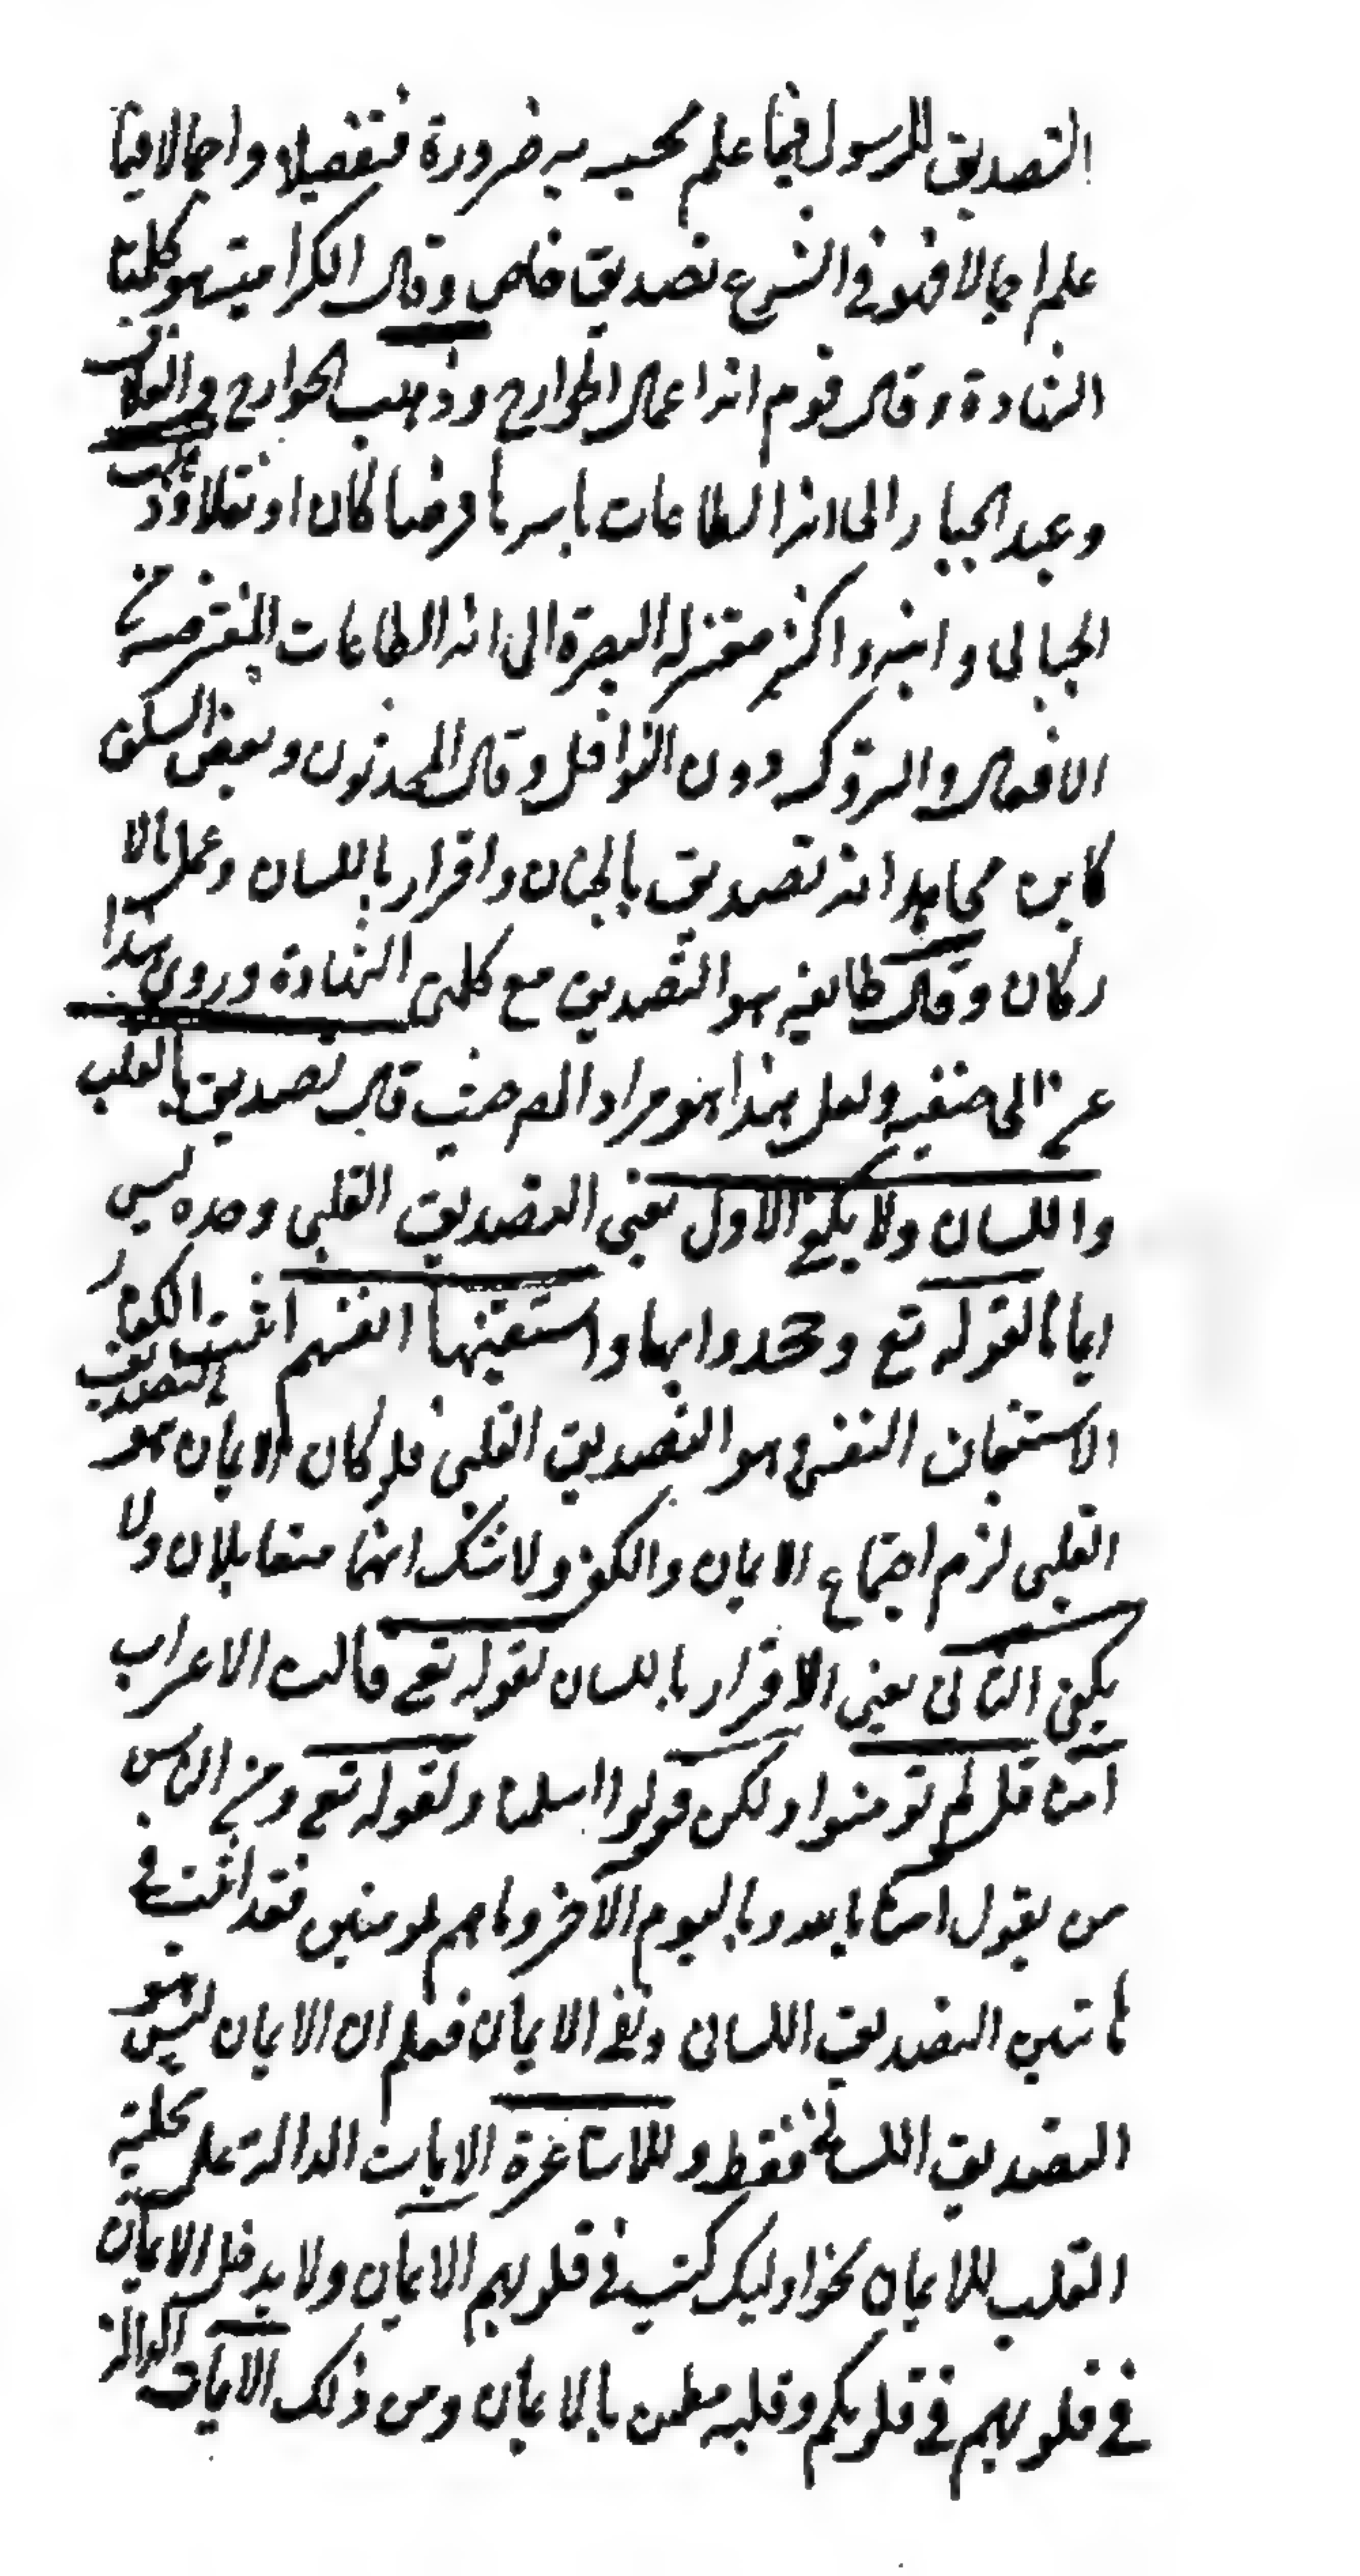 التصديق للرسول فيما علم مجيئه به ضرورة فتفصيلا واجمالا فيما
علم اجمالا فهو في الشرع تصديق خاص وقال الكرامية هو كلمتا
الشهادة وقال قوم انه اعمال الجوارح وذهب الخوارج والعلاف
وعبد الجبار الى انه الطاعات باسرها فرضا كان او نفلا وذهب
الجبائى وابنه واكثر معتزلة البصرة الى انه الطاعات المفترضة من
الافعال والتروك دون النوافل وقال المحدثون وبعض السلف
كابن مجاهد انه تصديق بالجنان واقرار باللسان وعمل بالا
ركان وقال طائفة هو التصديق مع كلمتى الشهادة وروى هذا
عن ابى حنيفه ولعل هذا هو مراد المص حيث قال تصديق بالقلب
واللسان ولا يكفى الاول يعنى التصديق القلبى وحده ليس
ايمانا لقوله تع وجحدوا بها واستيقنتها انفسهم اثبت للكفار
الاستيقان النفسى وهو التصديق القلبى فلو كان الايمان هو التصديق
القلبى لزم اجتماع الايمان والكفر ولا شك انهما متقابلان ولا
يكفى الثانى يعنى الاقرار باللسان لقوله تع قالت الاعراب
آمنا قل لم تومنوا ولكن قولوا اسلمنا ولقوله تع ومن الناس
من يقول امنا بالله وباليوم الآخر وما هم بمومنين فقد اثبت في
هاتين التصديق اللسانى ونفى الايمان فعلم ان الايمان ليس هو
التصديق اللسانى فقط وللاشاعرة الايات الدالة على محلية
القلب للايمان نحو اوليك كتب في قلوبهم الايمان ولا يدخل الايمان
في قلوبهم في قلوبكم وقلبه مطمئن بالايمان ومن ذلك الايات الدالة